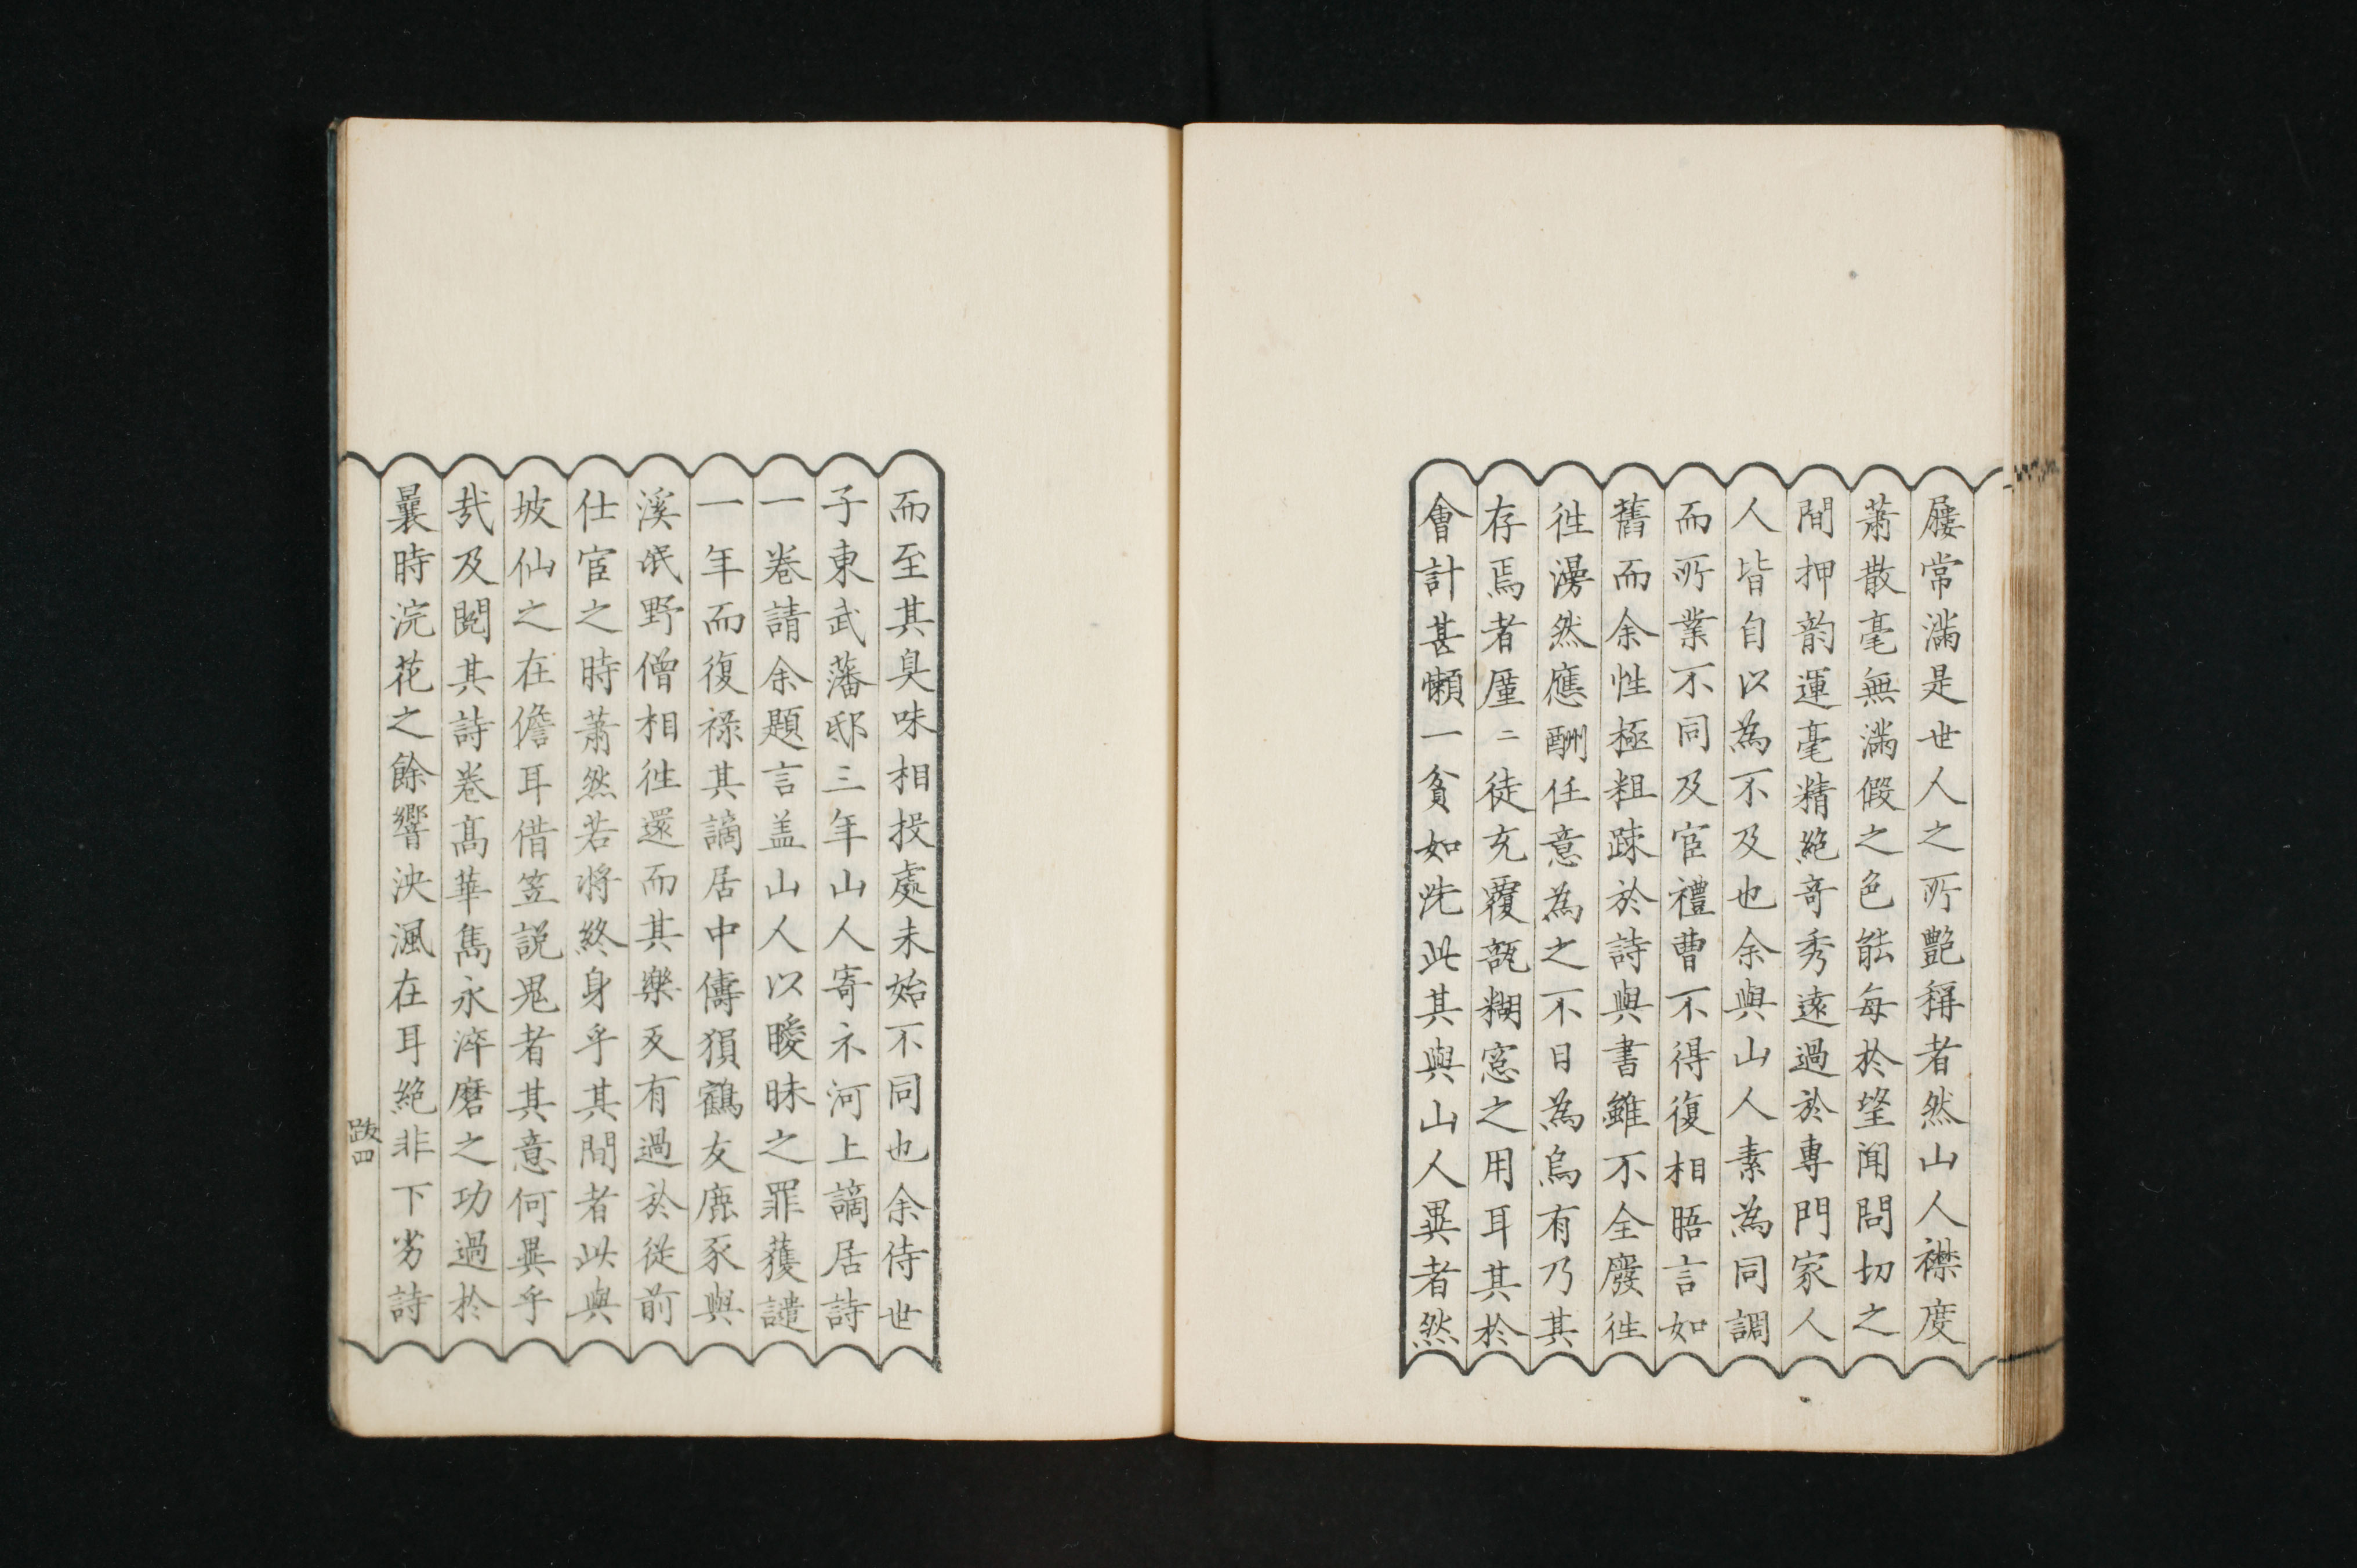 屨常滿是世人之所艷稱者然山人襟度
蕭散毫無滿假之色能每於望聞問切之
間押韵運毫精絶奇秀遠過於專門家人
人皆自以為不及也余與山人素為同調
而所業不同及宦禮曹不得復相晤言如
舊而余性極粗踈於詩與書雖不全廢徃
徃漫然應酬任意為之不日為烏有乃其
存焉者厪二徒充覆瓿糊窓之用耳其於
會計甚懶一貧如洗此其與山人異者然
而至其臭味相投處未始不同也余侍世
子東武藩邸三年山人寄示河上謫居詩
一卷請余題言盖山人以曖昧之罪獲譴
一年而復祿其謫居中儔猨鶴友鹿豕與
溪氓野僧相徃還而其樂反有過於從前
仕宦之時蕭然若將終身乎其間者此與
坡仙之在儋耳借笠説鬼者其意何異乎
哉及閲其詩卷高華雋永淬磨之功過於
曩時浣花之餘響泱渢在耳絶非下劣詩
跋四